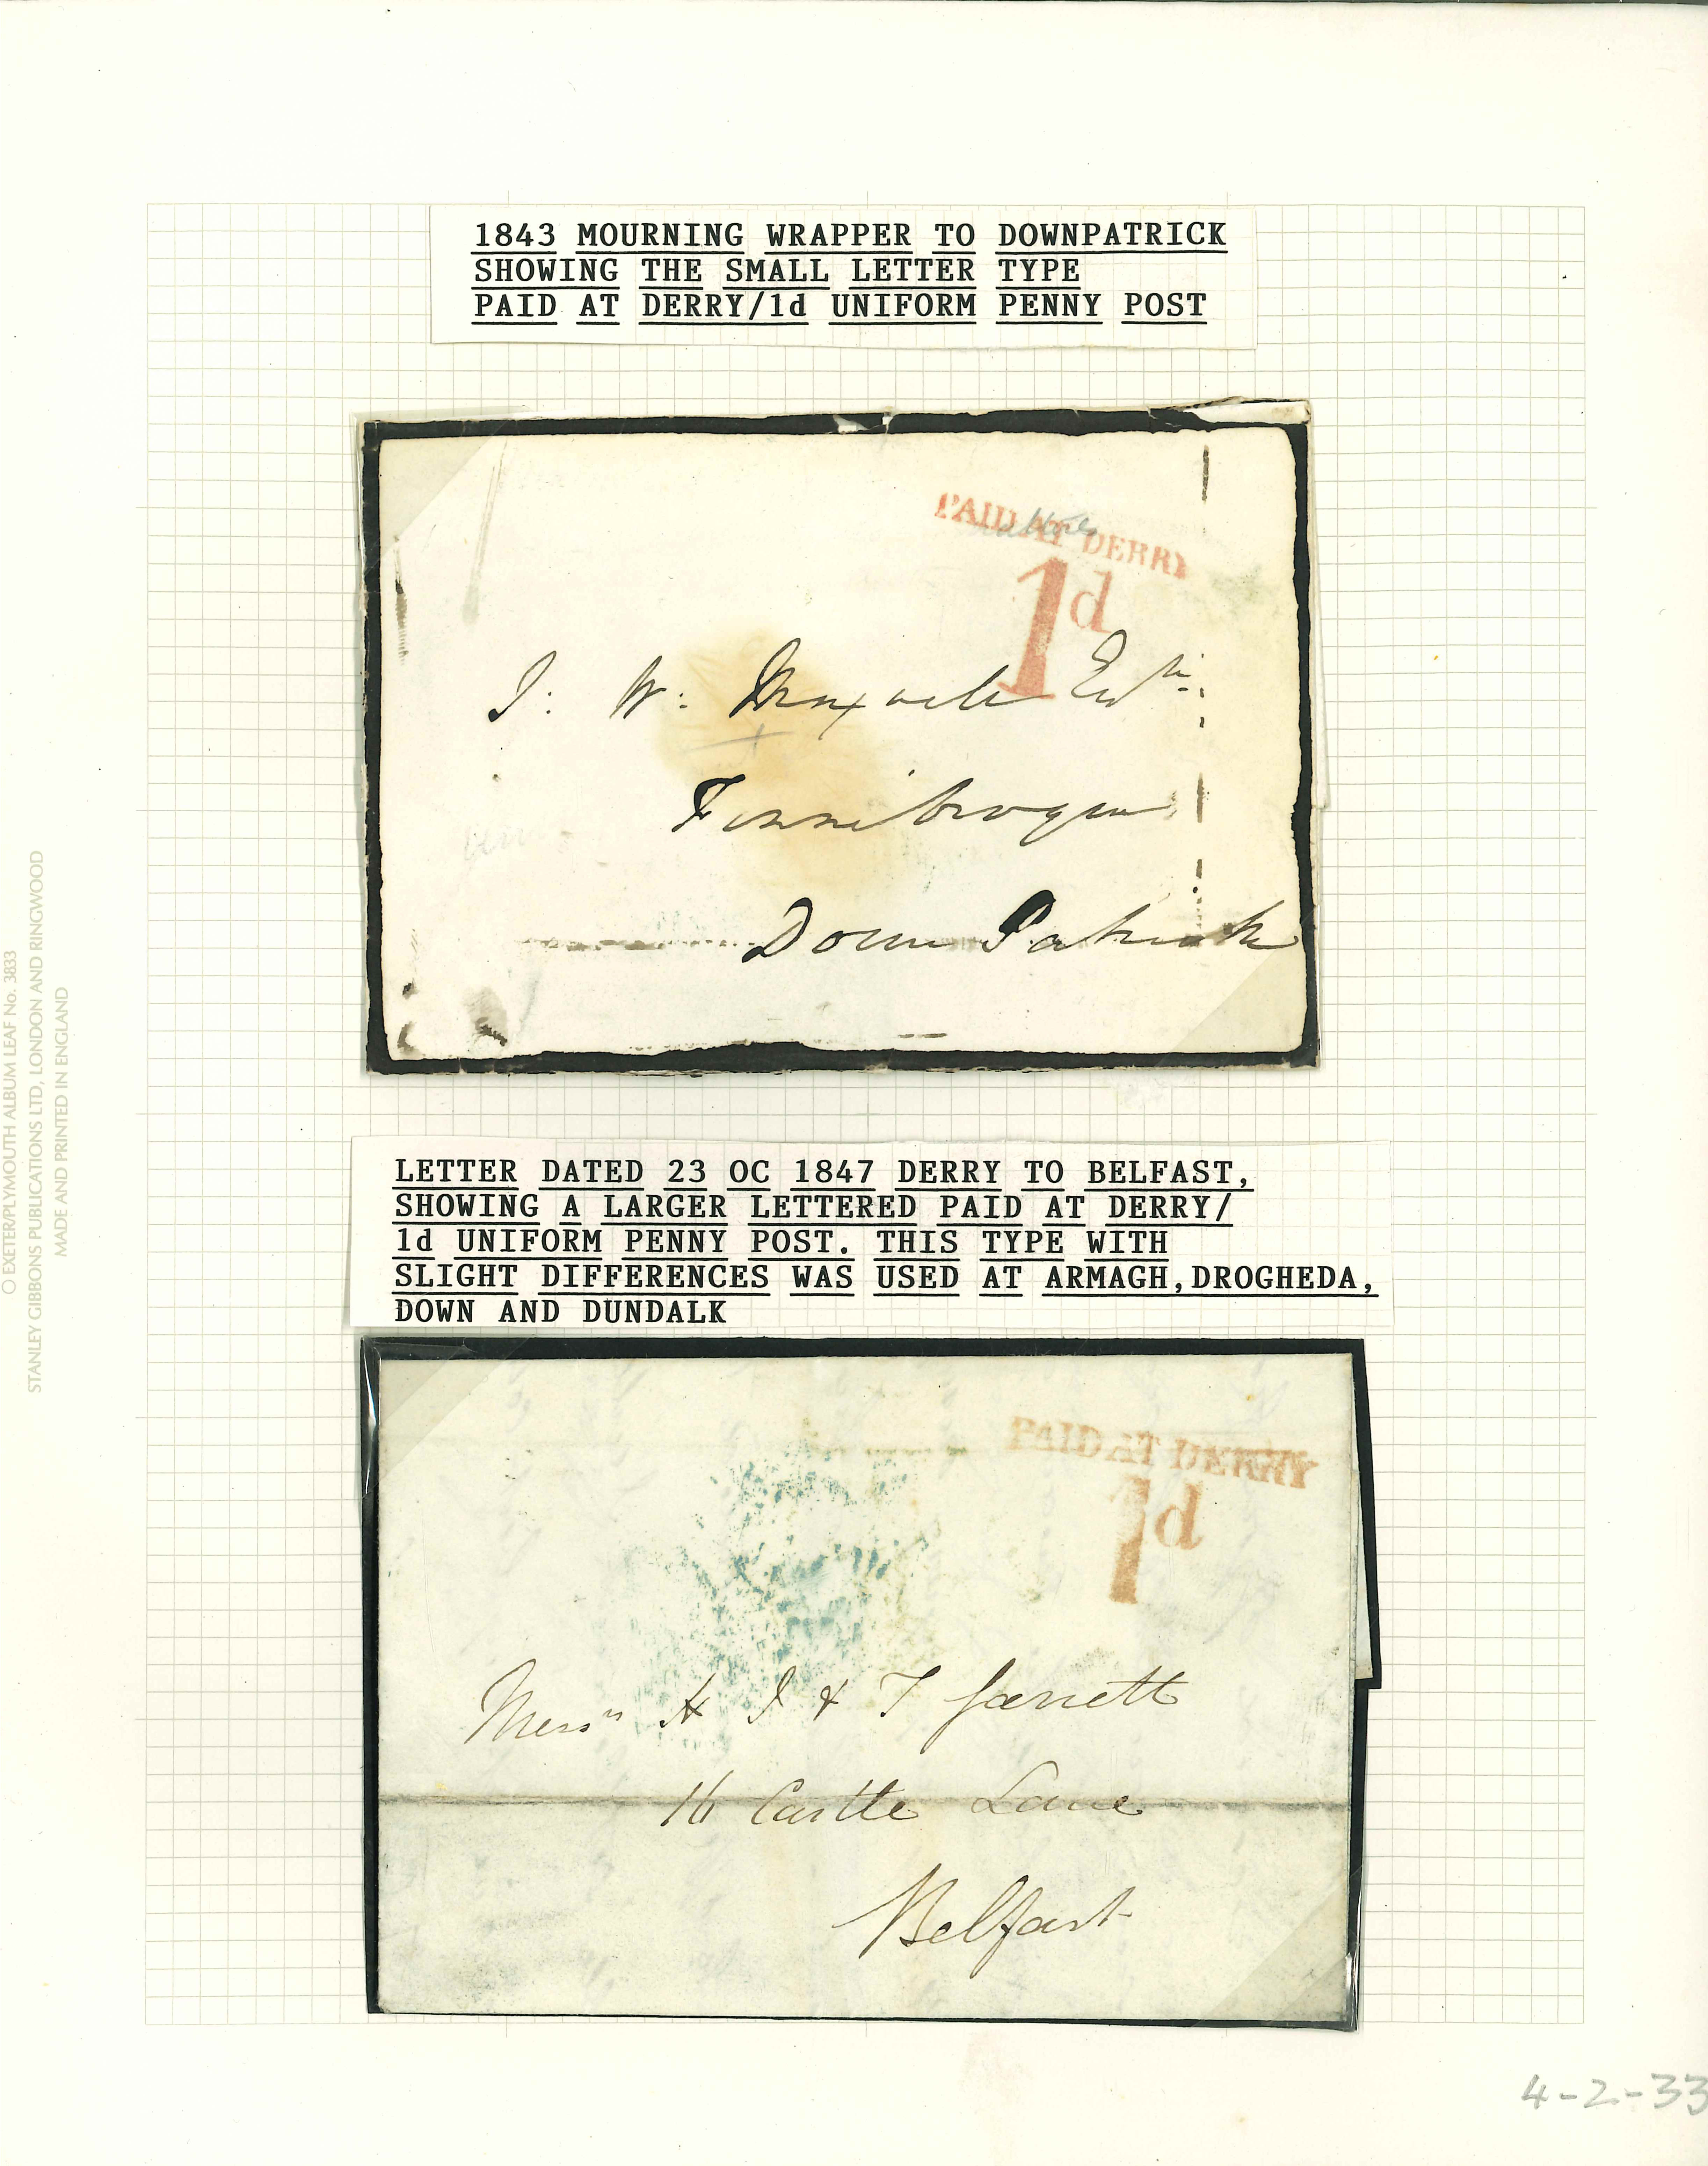 1843 MOURNING WRAPPER TO DOWNPATRICK
SHOWING THE SMALL LETTER TYPE
PAID AT DERRY/1d UNIFORM PENNY POST
PAID AT DERRY
1d
J: W: Maxwell Esqr
Finnibrogue
Down Patrick
LETTER DATED 23 OC 1847 DERRY TO BELFAST,
SHOWING A LARGER LETTERED PAID AT DERRY/
1d UNIFORM PENNY POST. THIS TYPE WITH
SLIGHT DIFFERENCES WAS USED AT ARMAGH,DROGHEDA,
DOWN AND DUNDALK
PAID AT DERRY
1d
Messrs H J & T Garrett
16 Castle Lane
Belfast
4-2-33
EXETER/PLYMOUTH ALBUM LEAF No. 3833
STANLEY GIBBONS PUBLICATIONS LTD, LONDON AND RINGWOOD
MADE AND PRINTED IN ENGLAND